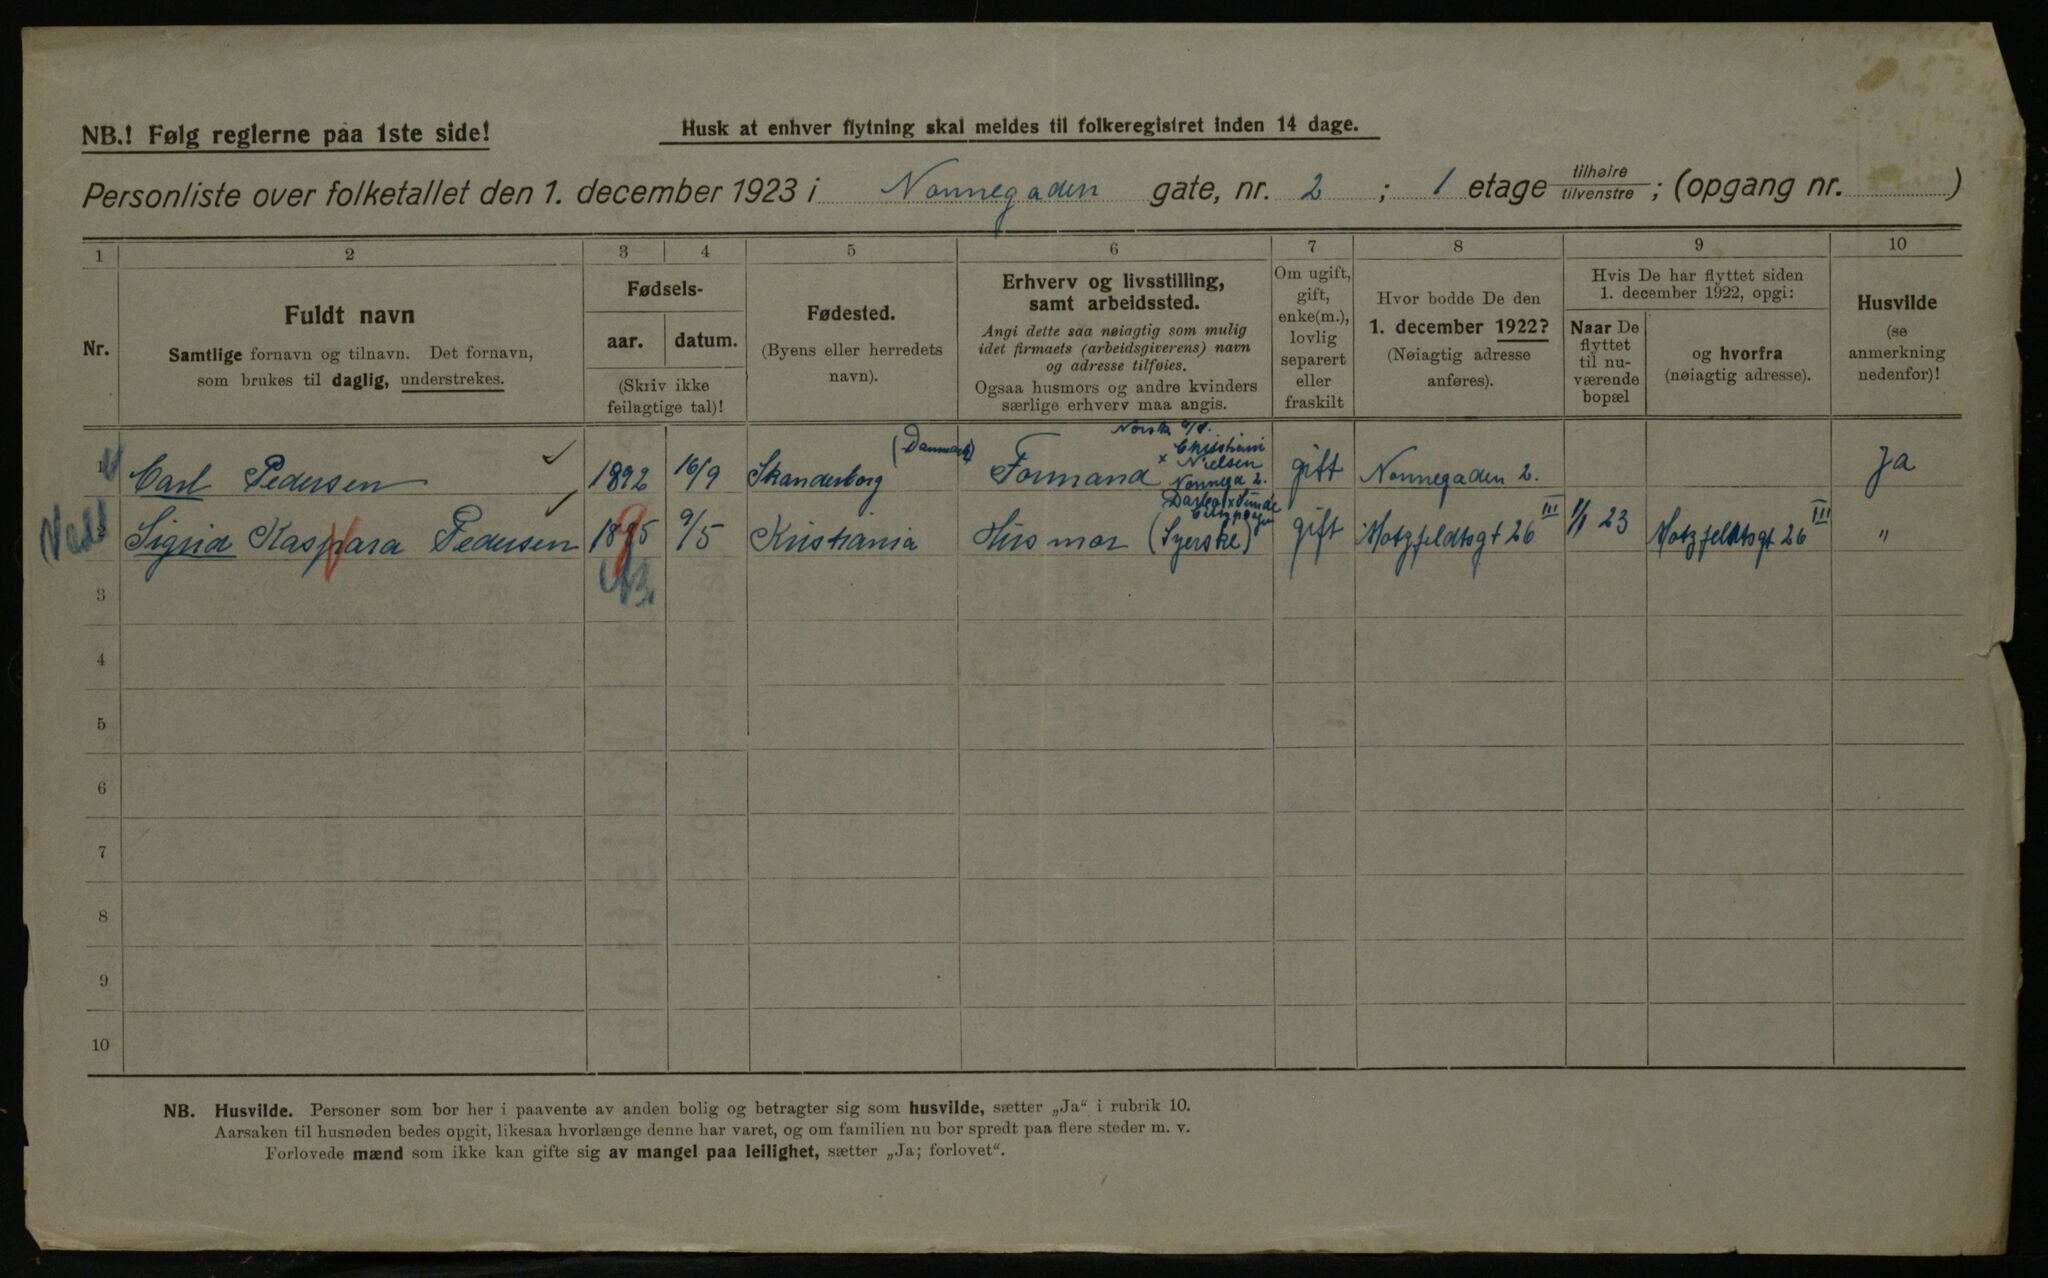 NB.! Følg reglerne paa 1ste side!
Husk at enhver flytning skal meldes til folkeregistret inden 14 dage.
Personliste over folketallet den 1. december 1923 i Nonnegaden gate, nr. 2 ; 1 etage tilhøire tilvenstre ; (opgang nr. )
1 2 3 4 5 6 7 8 9 10
Nr.
Fuldt navn
Samtlige fornavn og tilnavn. Det fornavn,
som brukes til daglig, understrekes.
Fødsels-
aar. datum.
(Skriv ikke
feilagtige tal)!
Fødested.
(Byens eller herredets
navn).
Erhverv og livsstilling,
samt arbeidssted.
Angi dette saa nøiagtig som mulig
idet firmaets (arbeidsgiverens) navn
og adresse tilføies.
Ogsaa husmors og andre kvinders
særlige erhverv maa angis.
Om ugift,
gift,
enke(m.),
lovlig
separert
eller
fraskilt
Hvor bodde De den
1. december 1922?
(Nøiagtig adresse
anføres).
Hvis De har flyttet siden
1. december 1922, opgi:
Naar De
flyttet
til nu-
værende
bopæl
og hvorfra
(nøiagtig adresse).
Husvilde
(se
anmerkning
nedenfor)!
Norsk A/S.
1 Carl Pedersen 1892 16/9 Skanderborg (Danmark) Formand x Christiani Nielsen Nonnegd 2. gift Nonnegaden 2. Ja
Sigrid Kaspara Pedersen 1895 9/5 Kristiania Husmor (Syerske) gift Motzfeldtsgt 26 III 1/1 23 Motzfeldtsgt 26 III "
3
4
5
6
7
8
9
10
NB. Husvilde. Personer som bor her i paavente av anden bolig og betragter sig som husvilde, sætter „Ja“ i rubrik 10.
Aarsaken til husnøden bedes opgit, likesaa hvorlænge denne har varet, og om familien nu bor spredt paa flere steder m. v.
Forlovede mænd som ikke kan gifte sig av mangel paa leilighet, sætter „Ja; forlovet“.